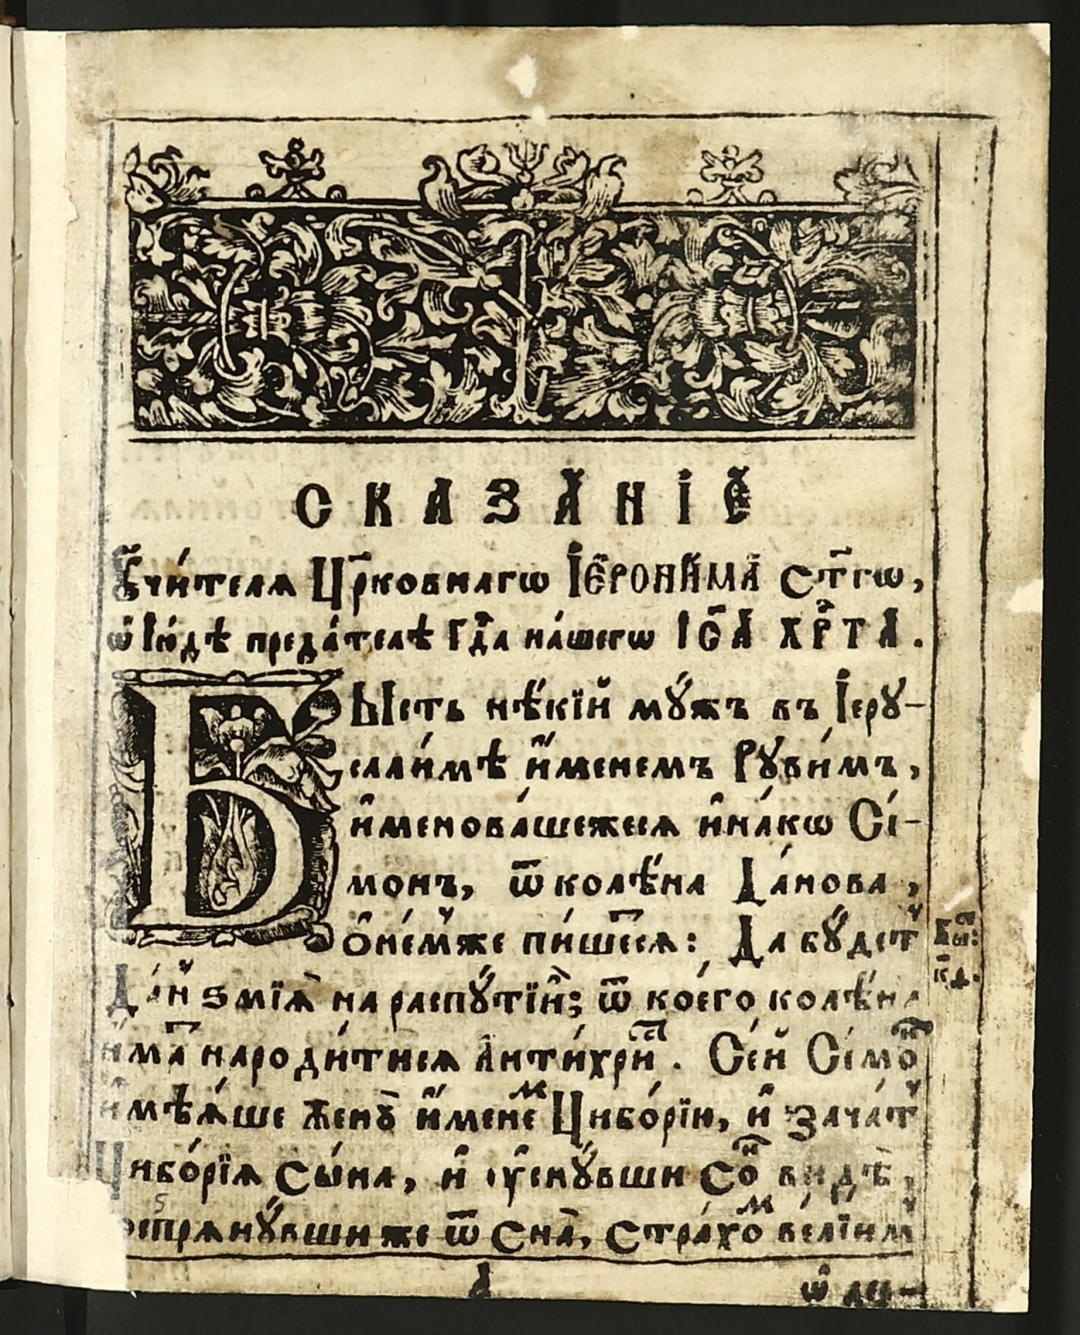 СКАЗА́НІЕ
Ѹ҆чи́телѧ Цр҃ковнагѡ І҆ЕРОНИ́МА ст҃гѡ,
ѡ҆ Ію́дѣ преда́телѣ Гд҃а на́шегѡ ІС҃А ХРТ҃А.
БЫсть нѣ́кїй мꙋ́жъ въ Іерꙋ-
сали́мѣ и҆́менемъ Рꙋви́мъ,
и҆менова́шежесѧ и҆на́кѡ Сі́-
монъ, ѿ колѣ́на Да́нова,
ѡ҆не́мже пи́шетсѧ: Да бꙋ́дет
Да́н ѕмїѧ̀ на распꙋ́тїи; ѿ коегѡ̀ колѣ́на
и҆́ма народи́тисѧ Антїхри́ст. Се́й Сі́мон
и҆мѣ́ѧше женꙋ̀ и҆́менем Цибо́рїю, и҆ зача́т
Цибо́рїѧ сы́на, и҆ ᲂу҆снꙋ́вши со́н ви́дѣ,
оспрѧнꙋ́вши же ѿ сна̀, стра́хом ве́лїим
Бы:
к҃д.
5
а҃
ѡ҆ лю-